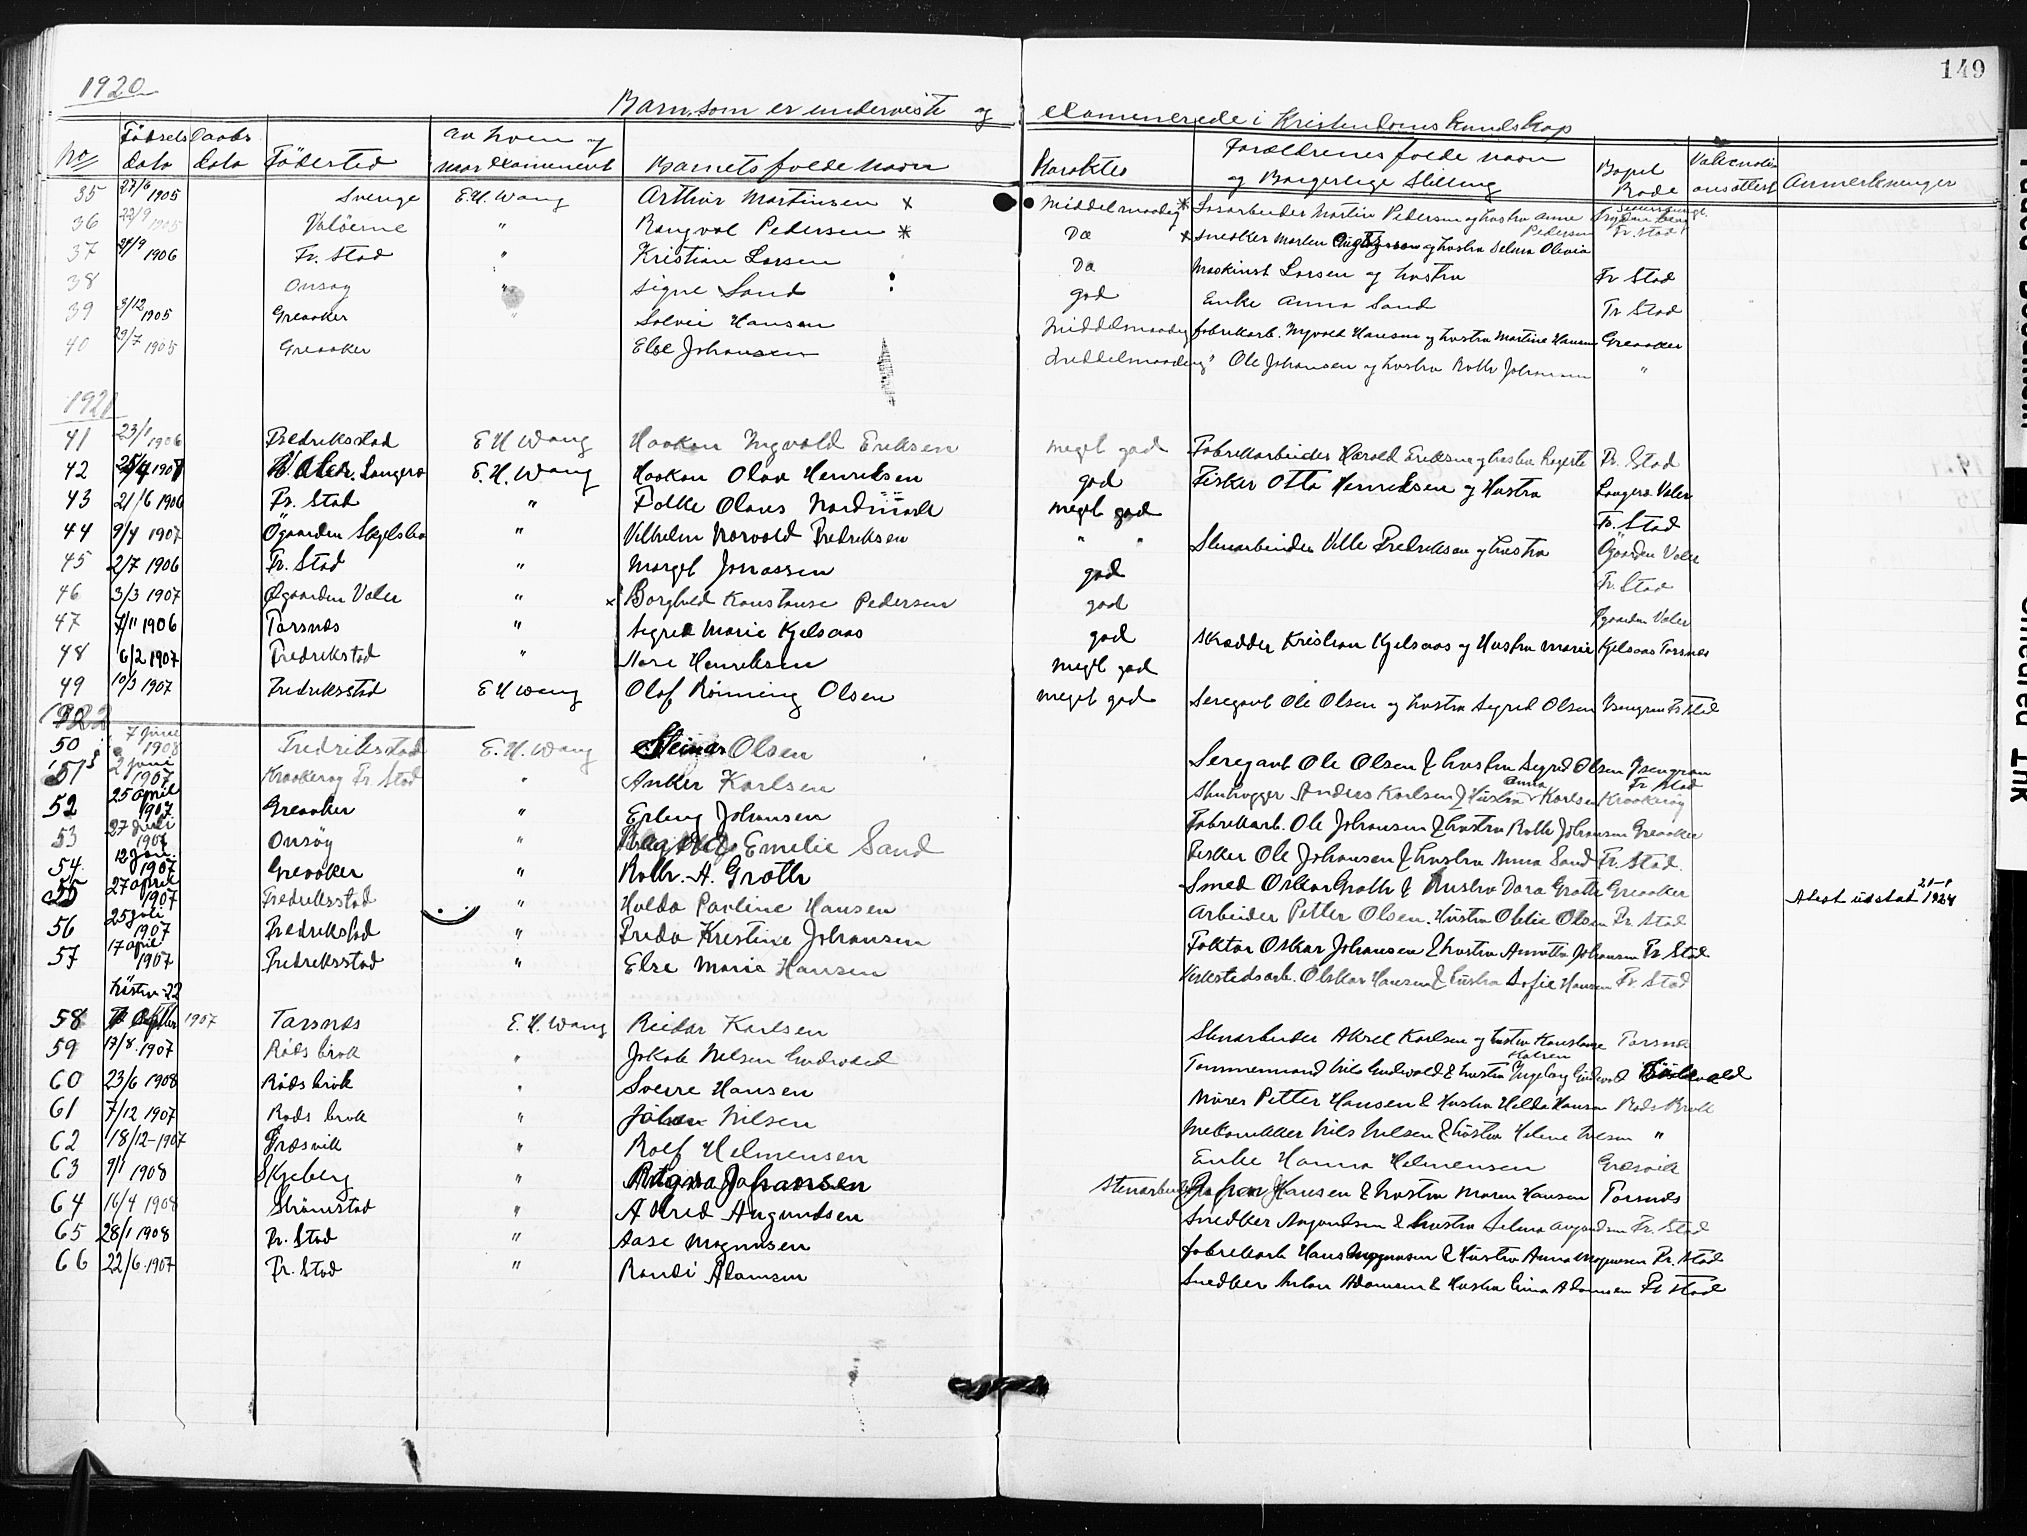 149
1920
Barn, som er underviste og examinerede i Kristendomskundskap
No Fødsels Dato Daabs Dato Födested av hvem og naar Examineret Barnets fulde navn Karakter Forældrenes fulde navn og Borgerlige Stilling Bopel Vaksenations attest Anmerkninger
35 1905 Sverige E.H. Wang Arthur Martinsen x Middelmaadig Martin Pedersen og hustru Anne Pedersen
36 22/9 1905 Valöerne " Rangval Pedersen Do Snedker Morten og hustru Selma Olivia Fr. Stad
37 1906 Fr. Stad " Kristian Larsen Do Maskinist Larsen og hustru Fr Stad
38 Onsøy " Signe Sand god Enke Anna Sand Fr Stad
39 3/12 1905 Greaaker " Solvei Hansen Middelmaadig fabrikarb. Ingvald Hansen og hustru Martine Hansen Greaaker
40 29/7 1905 Greaaker Else Johansen Middelmaadig " Ole Johansen og hustru Johansen "
1921
41 23/1 1906 Fredriksstad E H Wang Haakon Ingvald Eriksen meget god Fabrikarbeider Harald Eriksen og hustru Fr. Stad
42 Langerø E.H. Wang Haakon Olav Henriksen god Fisker Otto Henriksen og Hustru Langerø Valer
43 21/6 1906 Fr. Stad " Folke Olaus Nordmark meget god Fr. Stad
44 9/4 1907 Ögaarden " Vilhelm Norvald Fredriksen " " Stenarbeider Ville Fredriksen og hustru Ögaarden Valer
45 2/7 1906 Fr. Stad " Margit Jonassen god Fr. Stad
46 3/3 1907 Øgaarden Valer " Borghild Konstanse Pedersen god Øgaarden Valer
47 7/11 1906 Torsnæs " Sigrid Marie Kjelsaas god Skrædder Kristian Kjelsaas og Hustru Marie Kjelsaas Torsnæs
48 6/2 1907 Fredrikstad " Aase Henriksen meget god
49 10/3 1907 Fredriksstad E H Wang Olaf Rønning Olsen meget god Seregant Ole Olsen og hustru Sigrid Olsen Fr Stad
1922
50 7 Juni 1908 Fredriksstad E. H. Wang Steinar Olsen Seregant Ole Olsen & hustru Sigrid Olsen Fr Stad
51 2 Juni 1907 Kraakerøy Fr. Stad " Anker Karlsen Stenhugger Anders Karlsen & Hustru Anna Karlsen Kraakerøy
52 25 april 1907 Greaaker " Erling Johansen Fabrikarb. Ole Johansen & hustru Johansen Greaaker
53 27 Juli 1907 Onsöy " Emelie Sand Fisker Ole Johansen & hustru Anna Sand Fr. Stad.
54 12 Jan. 1907 Greaaker " Groth Smed Oskar Groth & Hustru Dora Groth Greaaker
55 27 april 1907 Fredriksstad " Hulda Pauline Hansen Arbeider Petter Olsen. Hustru Olsen Fr. Stad Atest udstat 21-1 1924
56 25 Juli 1907 Fredrikstad " Frida Kristine Johansen Faktor Oskar Johansen & hustru Annette Johansen Fr Stad
57 17 april 1907 Fredriksstad " Else Marie Hansen Verkstedsarb. Oskar Hansen & hustru Sofie Hansen Fr Stad
hösten-22
58 1907 Torsnæs E. H. Wang Reidar Karlsen Stenarbeider Aksel Karlsen og hustru Konstanse Torsnæs
59 17/8 1907 Röds bruk " Jakob Nilsen Gudevold Tømmermand Nils Gudevold & hustru Ingeborg Gudevold
60 23/6 1908 Röds bruk " Sverre Hansen Murer Petter Hansen & Hustru Hilda Hansen Röds Bruk
61 7/12 1907 Röds bruk " Johan Nilsen Mekanikker Nils Nilsen & hustru Helene Nilsen "
62 18/12-1907 Græsvik " Rolf Helmensen Enke Hanna Helmensen Græsvik
63 9/1 1908 Skjeberg " Johansen Stenarbeider Hansen & hustru Maren Hansen Torsnæs
64 16/4 1908 Strömstad " Alfrid Augundsen Snedker Augundsen & hustru Selma Augundsen Fr. Stad
65 28/1 1908 Fr. Stad " Aase Magnusen fabrikarb Hans Magnusen & Hustru Anna Magnusen Fr. Stad
66 22/6-1907 Fr. Stad " Randi Adamsen Snedker Anton Adamsen & Hustru Adamsen Fr Stad